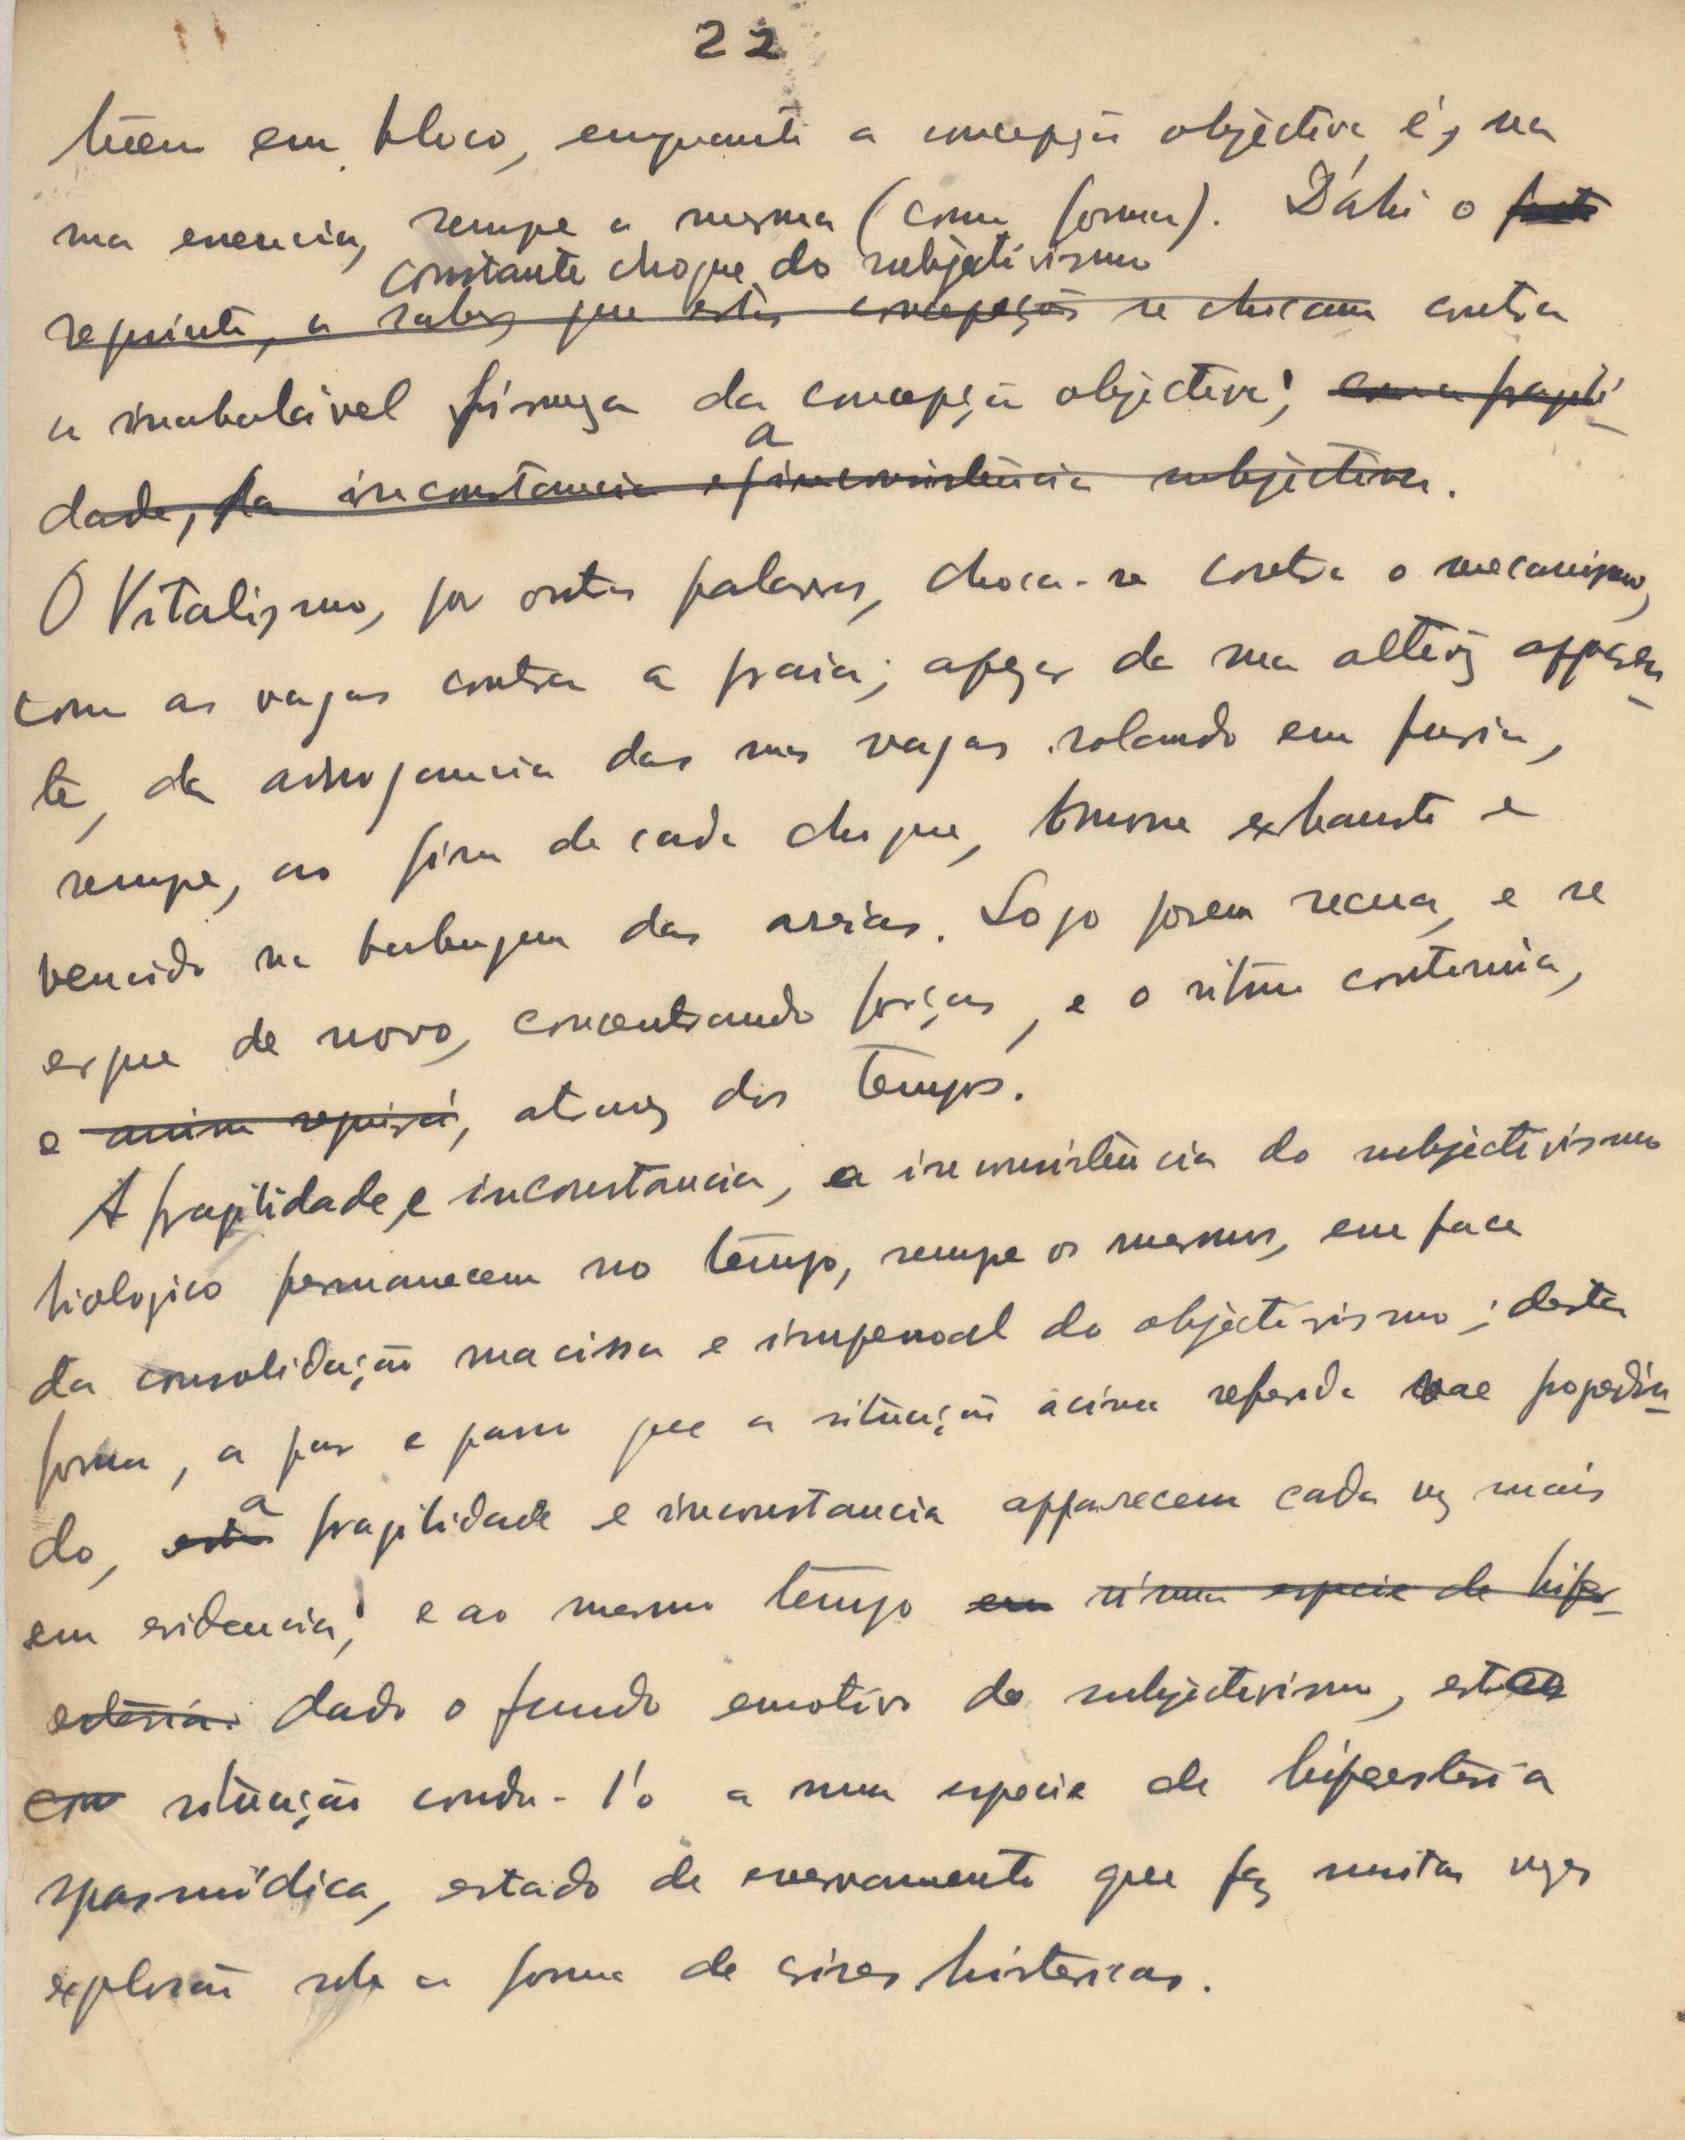 22
em bloco, enquanto a concepção objectiva é, na
sua essencia, sempre a mesma (como forma). D'ahi o facto
constante choque do subjectivismo
seguinte, a saber, que estas concepções se chocam contra
a inabalável firmeza da concepção objectiva;
a
dade, da inconstancia e inconsistência subjectiva.
O Vitalismo, por outras palavras, choca-se contra o mecanismo,
como as vagas contra a praia; apezar da sua altivez apparen-
te, da arrogancia das suas vagas rolando em furia,
sempre, ao fim de cada choque, morre exhausto e
vencido na babugem das areias. Logo porem recua, e se
ergue de novo, concentrando forças, e o ritmo continúa,
e assim seguirá, atravez dos tempos.
A fragilidade, e inconstancia, a inconsistência do subjectivismo
biologico permanecem no tempo, sempre os mesmos, em face
da consolidação macissa e impessoal do objectivismo; desta
forma, a par e passo que a situação acima referida vae progredin-
do, esta a fragilidade e inconstancia apparecem cada vez mais
em evidencia; e ao mesmo tempo em n'uma especie de hiper-
estesia. dado o fundo emotivo do subjectivismo, esta
situação condu-l'o a uma especie de hiperestesia
spasmódica, estado de enervamento que faz muitas vezes
explosão sob a forma de crises histericas.